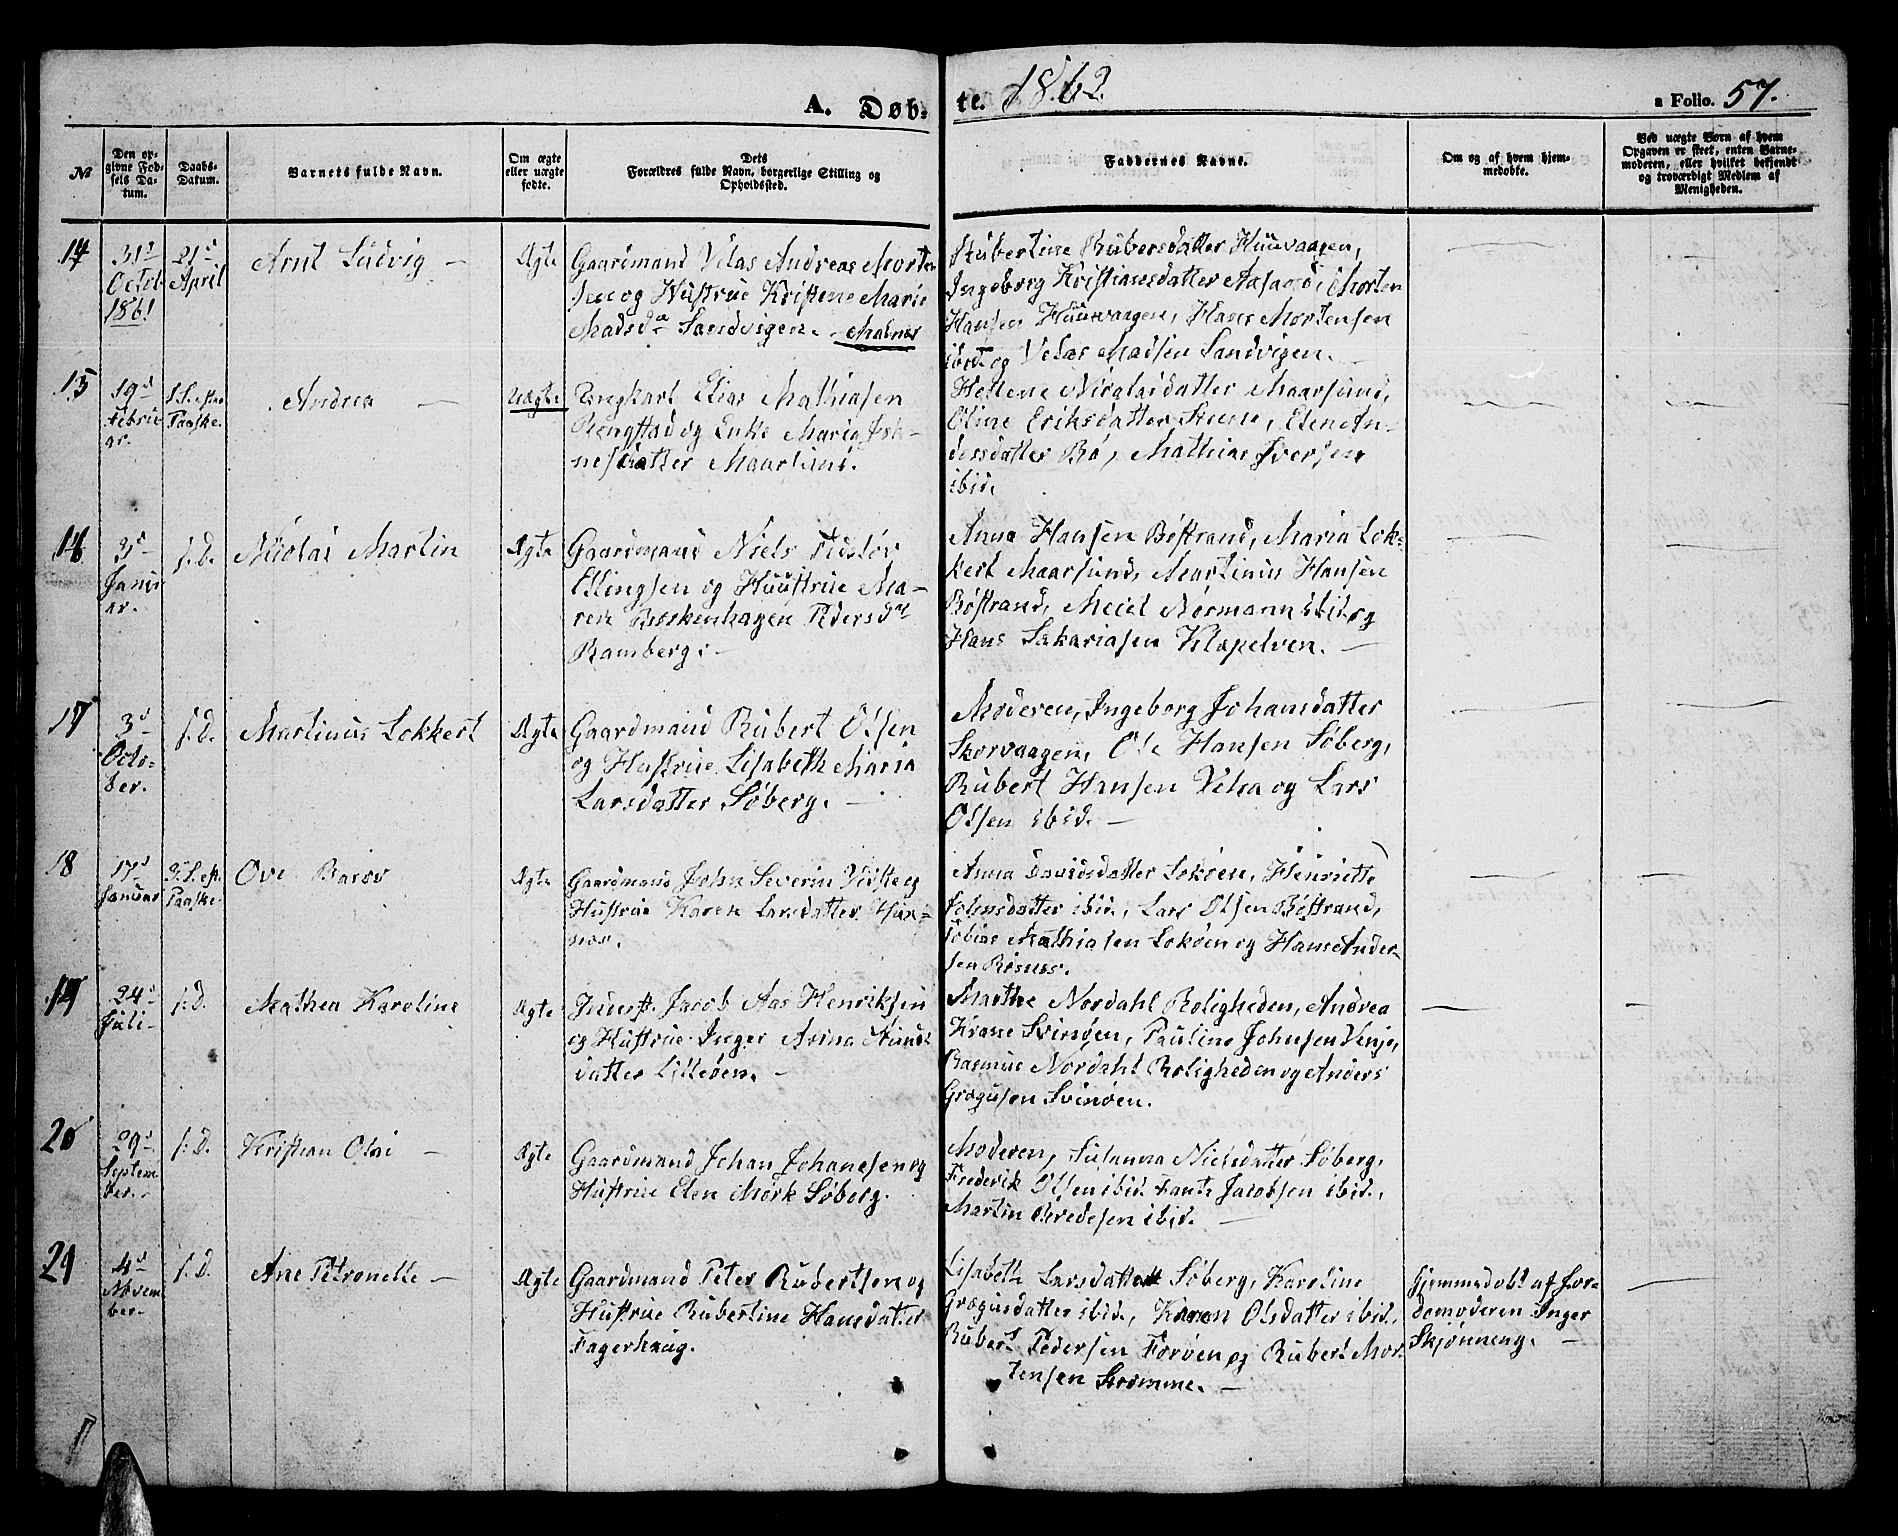 A. Døb- te. 1862. a Folio. 57.
No
Den op-
givne Fød-
sels Da-
tum.
Daabs-
Datum.
Barnets fulde Navn.
Om ægte
eller uægte
fødte.
Dets
Forældres fulde Navn, borgerlige Stilling og
Opholdssted.
Faddernes Navne.
Om og af hvem hjem-
medøbt.
Ved uægte Børn af hvem
Opgaven er skeet, enten Barne-
moderen, eller hvilket bekjendt
og troværdigt Medlem af
Menigheden.
14
31d
Octob.
1861
21d
April
Arnt Ludvig –
Ægte
Gaardmand Velas Andreas Morten-
sen og Hustrue Kristene Marie
Madsda Sandvigen. Malnes
Rubertine Rubersdatter Huuvaagen,
Ingeborg Kristiansdatter Aasand, Morten
Hansen Huuvaagen, Hans Mortensen
ibid. og Velas Madsen Sandvigen.
15
19d
Februe-
ar.
1.S. efter
Paaske.
Andrea –
Uægte
Ungkarl Elias Mathiasen
Ringstad og Enke Marig Joh-
nesdatter Maarsund.
Hellene Nicolaisdatter Maarsund,
Eline Eriksdatter Steene, Elen An-
dersdatter Bø, Mathias Iversen
ibid.
16
3d
Janu-
ar.
s.D.
Nicolai Martin
Ægte
Gaardmand Niels Fidsløv
Ellingsen og Huustrue Ma-
ren Bockenhagen Pedersdat
Ramberg. –
Anna Hansen Bøstrand, Maria Lok-
kert Maarsund, Martinus Hansen
Bøstrand, Meiel Normann ibid. og
Hans Sakariasen Klapelven. –
17
3d
Octo-
ber.
s.D.
Martinus Lokkert
Ægte
Gaardmand Rubert Olsen
og Hustrue Lisabeth Maria
Larsdatter Søberg. –
Moderen, Ingeborg Johansdatter
Skorvaagen, Ole Hansen Søberg,
Rubert Hansen Vika og Lars
Olsen ibid. –
18
17d
Januar
2.S. eft.
Paaske.
Ove Barov
Ægte
Gaardmand John Severin Vidste og
Hustrue Karen Larsdatter Hun-
nes.
Anna Davidsdatter Lokøen, Henriette
Johnsdatter ibid., Lars Olsen Bøstrand,
Tobias Mathiasen Lokøen og Hans Ander-
sen Risnes.
19
24d
Juli –
s.D.
Mathea Karoline
Ægte
Inderst. Jacob Aas Henriksen
og Hustrue Inger Anna Amunds-
datter Lilleøen. –
Marthe Nordahl Roligheden, Andrea
Krane Svinøen, Pauline Johnsen Vinje,
Rasmus Nordahl Roligheden og Anders
Gregusen Svinøen.
20
29d
Septem-
ber.
s.D.
Kristian Olai –
Ægte
Gaardmand Johan Johanesen og
Hustrue Elen Mørk Søberg.
Moderen, Susanna Nielsdatter Søberg,
Frederik Olsen ibid. Jacobsen ibid.,
Martin Bredesen ibid. –
21
4d
Novem-
ber.
s.D.
Ane Petronelle –
Ægte
Gaardmand Peter Rubertsen og
Hustrue Rubertine Hansdatter
Fagerhaug.
Lisabeth Larsdatter Søberg, Karoline
Gregusdatter ibid., Karen Olsdatter ibid.
Rubert Pedersen Forøen og Rubert Mor-
tensen Strømme. –
Hjemmedøbt af Jor-
demoderen Inger
Skjønneng. –